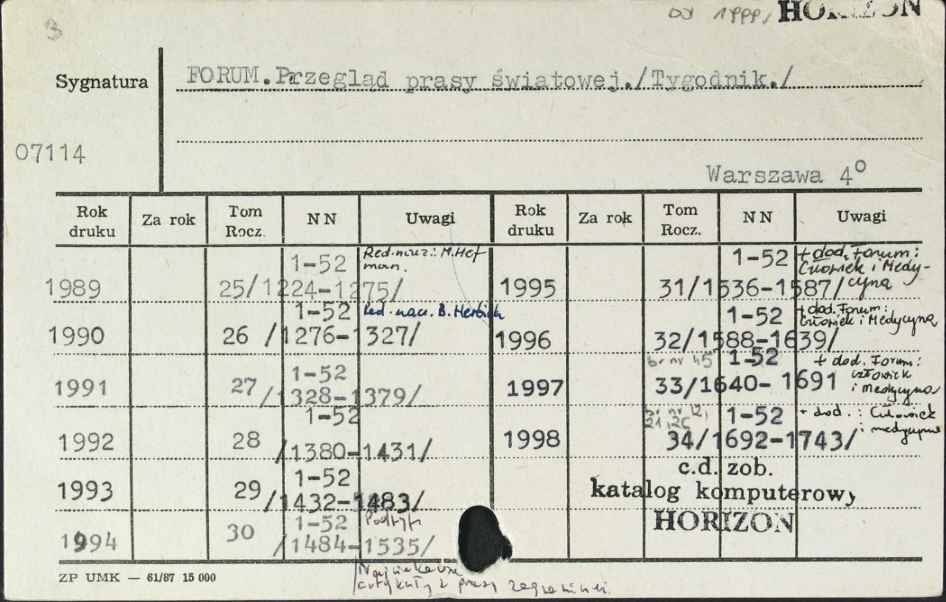 3
od 1999/ HORIZON
Sygnatura FORUM.Przegląd prasy światowej./Tygodnik./
07114
Warszawa 4°
Rok druku Za rok Tom Rocz. NN Uwagi Rok druku Za rok Tom Rocz. NN Uwagi
1989 25/1224-1275/ 1-52 Red. nacz.: M. Hofman. 1995 31/1536-1587/ 1-52 + dod. Forum: Człowiek i Medycyna
1990 26 /1276-1327/ 1-52 Red. nacz. B. Herbich 1996 32/1588-1639/ 1-52 + dod. Forum: Człowiek i Medycyna
1991 27/1328-1379/ 1-52 1997 br nr 45 33/1640-1691 1-52 + dod. Forum: człowiek i Medycyna
1992 28 /1380-1431/ 1-52 1998 br nr 12, 21, 26 34/1692-1743/ 1-52 + dod.: Człowiek i medycyna
1993 29/1432-1483/ 1-52
1994 30 /1484-1535/ 1-52 Podtyt.
c.d. zob.
katalog komputerowy
HORIZON
Najciekawsze
artykuły z prasy zagranicznej.
ZP UMK — 61/87 15 000